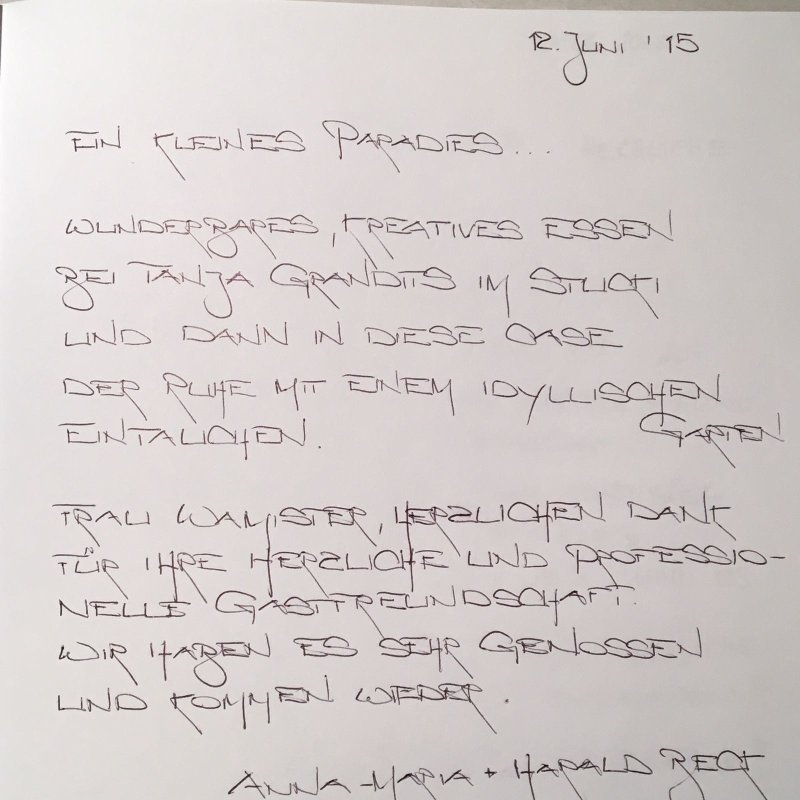 12. JUNI '15
EIN KLEINES PARADIES...
WUNDERBARES, KREATIVES ESSEN
BEI TANJA GRANDITS IM STUCKI
UND DANN IN DIESE OASE
DER RUHE MIT EINEM IDYLLISCHEN
GARTEN
EINTAUCHEN.
FRAU WAMISTER, HERZLICHEN DANK
FÜR IHRE HERZLICHE UND PROFESSIO-
NELLE GASTFREUNDSCHAFT.
WIR HABEN ES SEHR GENOSSEN
UND KOMMEN WIEDER.
ANNA-MARIA + HARALD BECK